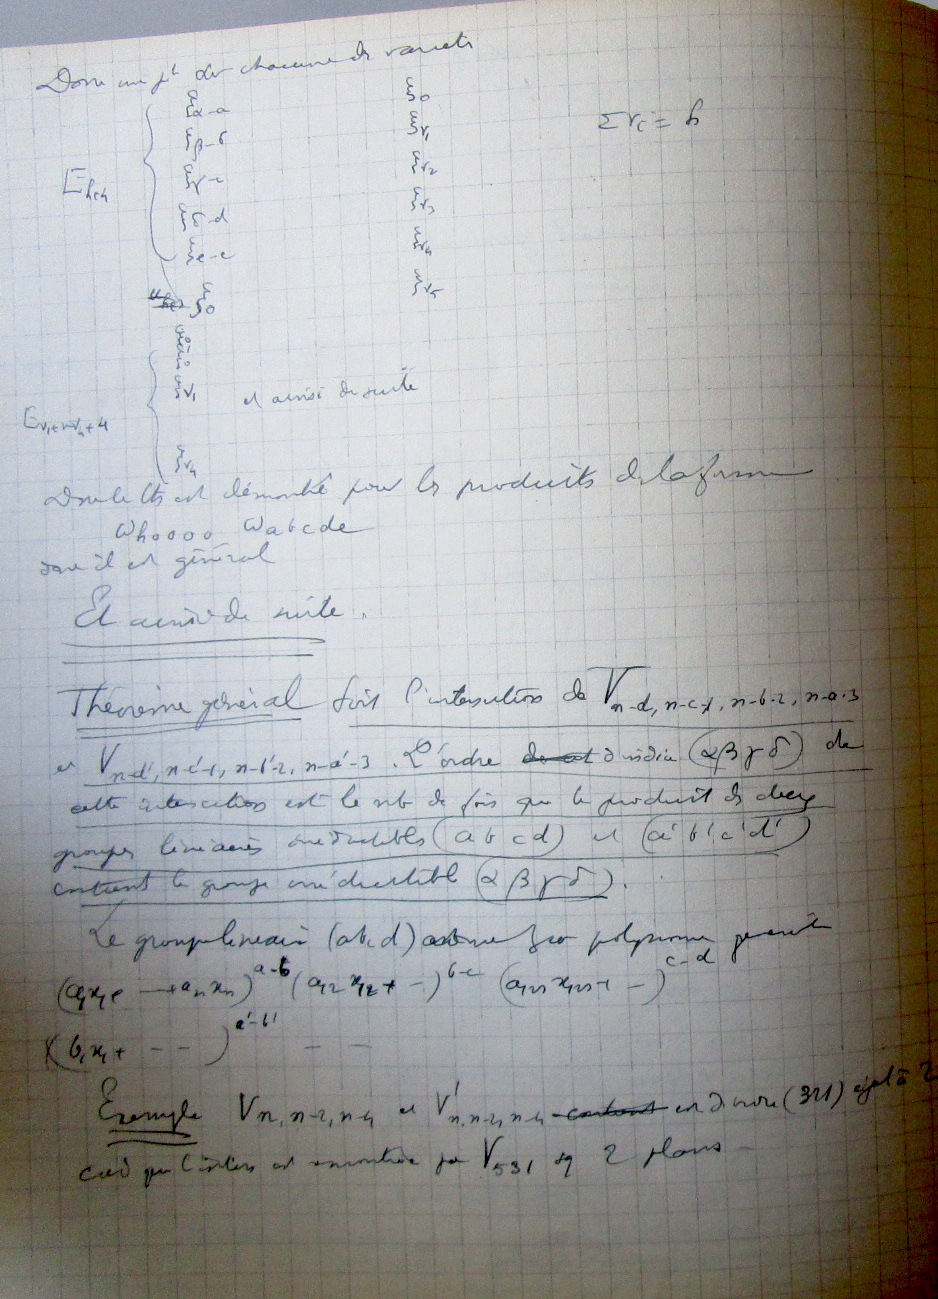 Donc un pt des chacune des variétés
α-a 0
β-b v1
γ-c v2 Σ vi = h
E h+4
δ-d v3
e-e v4
0 v5
v1 et ainsi de suite
E v1+...v4+4
v4
Donc le th est démontré pour les produits de la forme
Wh0000 Wabcde
donc il est général
Et ainsi de suite.
Théorème général Soit l'intersection de V n-d, n-c-1, n-b-2, n-a-3
et V n-d', n-c'-1, n-b'-2, n-a'-3. L'ordre d'indice (αβγδ) de
cette intersection est le nb de fois que le produit de deux
groupes linéaires irréductibles (abcd) et (a'b'c'd')
contient le groupe irréductible (αβγδ).
Le groupe linéaire (abcd) polynome
(a1x1+ --- +anxn)^a-b (a12x12+ -)^b-c (a123x123+ -)^c-d
×(b1x1+ - - )^a'-b' - -
Exemple Vn,n-2,n-4 et V'n,n-2,n-4 est d'indice (321) égal à 2
càd que l'inters est rencontrée par V531 2 plans